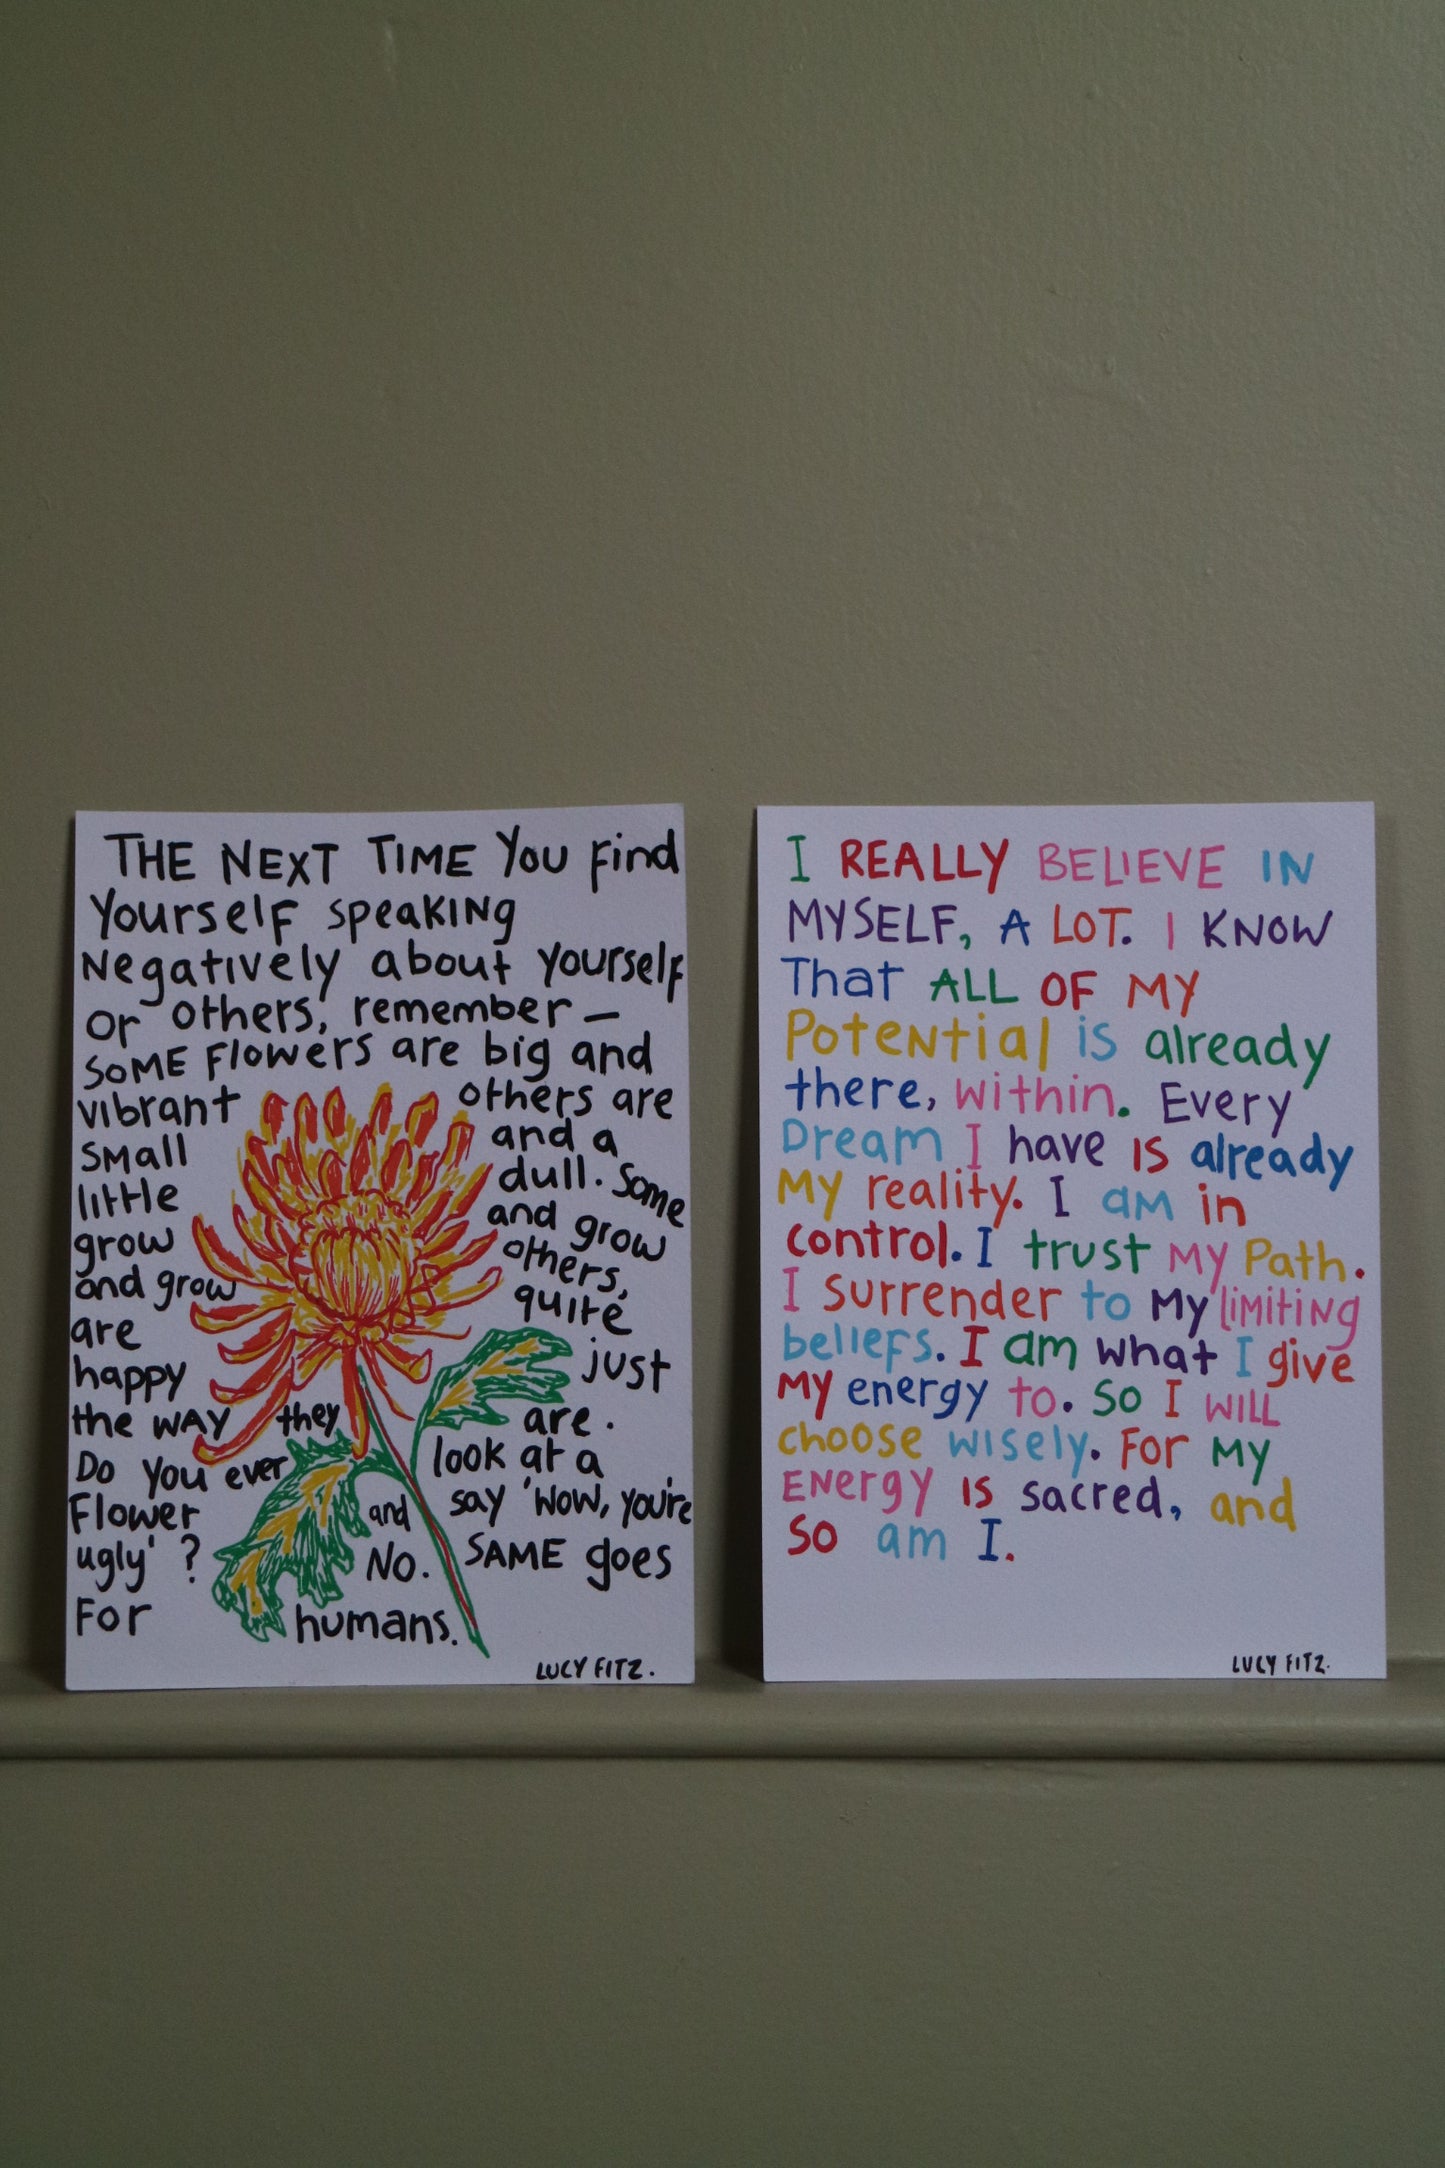 THE NEXT TIME You find
Yourself speaking
Negatively about yourself
or others, remember –
SOME Flowers are big and
vibrant others are
small and a
little dull. Some
grow and grow
and grow others,
are quite
happy just
the way they are.
Do you ever look at a
Flower and say 'Wow, you're
ugly' ? No. SAME goes
For humans.
LUCY FITZ.
I REALLY BELIEVE IN
MYSELF, A LOT. I KNOW
That ALL OF MY
Potential is already
there, within. Every
Dream I have is already
My reality. I am in
control. I trust My Path.
I surrender to My limiting
beliefs. I am what I give
My energy to. So I WILL
choose wisely. For My
Energy is sacred, and
so am I.
LUCY FITZ.